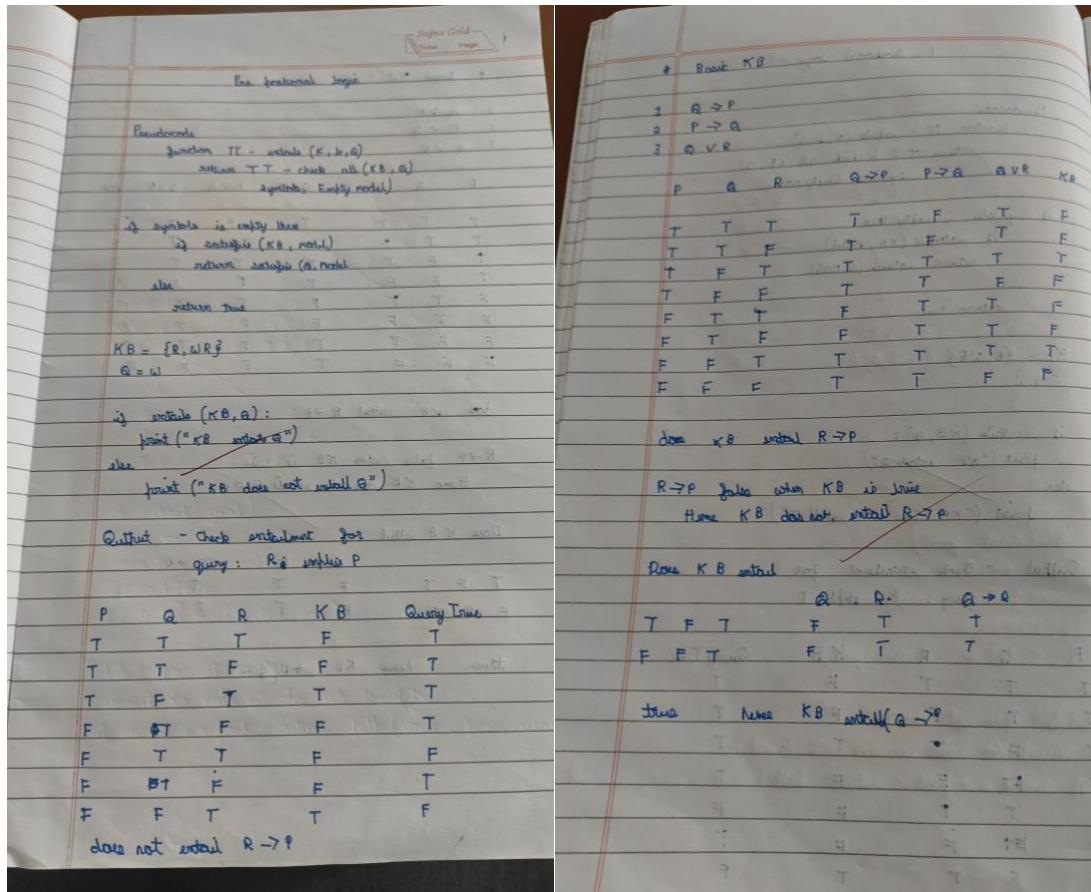 Safna Gold
Pre positional logic
Pseudocode
function TT - entails (K, b, Q)
return TT - check all (KB, Q)
symbols, Empty model)
if symbols is empty then
if satisfies (KB, model)
return satisfies (Q, model
else
return true
KB = {R, WR}
Q = W
if entails (KB, Q) :
print ("KB entails Q")
else
print ("KB does not entall Q")
Output - Check entailment for
query : R implies P
P Q R KB Query True
T T T F T
T T F F T
T F T T T
F T F F T
F T T F F
F T F F T
F F T T F
does not entail R → P
* Basic KB
1 Q → P
2 P → Q
3 Q V R
P Q R Q → P P → Q Q V R KB
T T T T F T F
T T F T F T F
T F T T T T T
T F F T T F F
F T T F T T F
F T F F T T F
F F T T T T T
F F F T T F F
does KB entail R → P
R → P false when KB is true
Hence KB does not entail R → P
Does KB entail
Q R Q → R
T F T F T T
F F T F T T
true hense KB entails Q → P